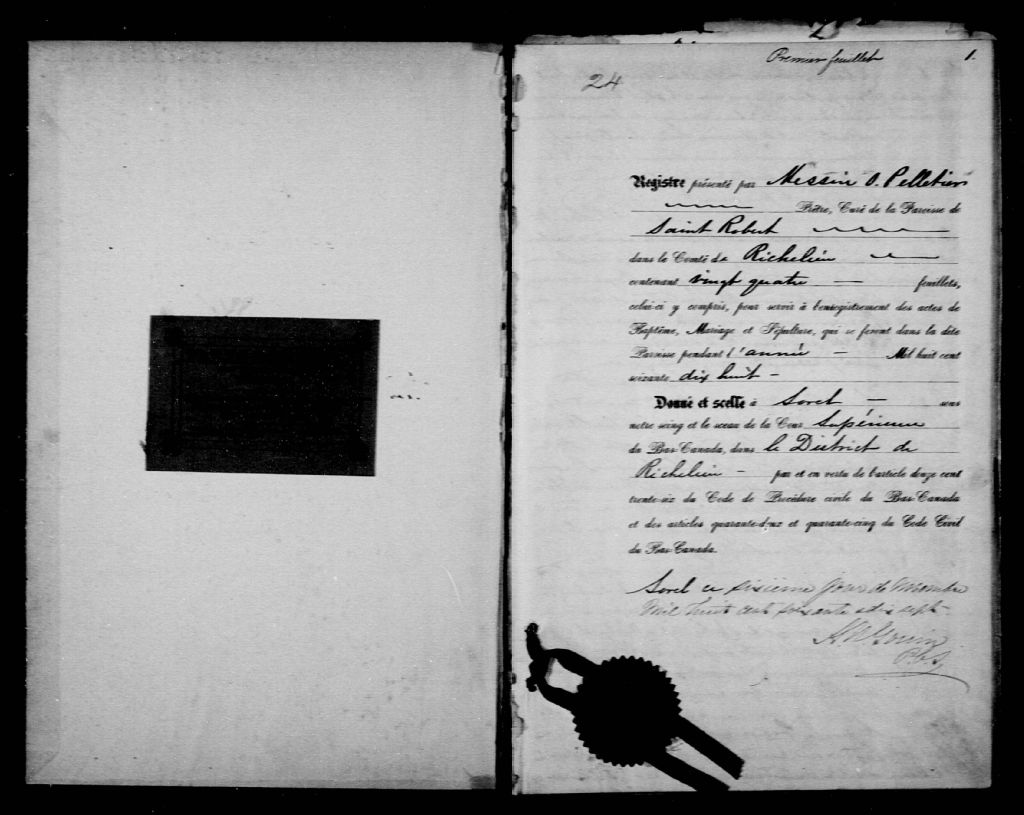 Premier feuillet 1.
24
Registre présenté par Messire O. Pelletier
Prêtre, Curé de la Paroisse de
Saint Robert
dans le Comté de Richelieu
contenant vingt quatre — feuillets,
celui-ci y compris, pour servir à l'enregistrement des actes de
Baptême, Mariage et Sépulture, qui se feront dans la dite
Paroisse pendant l'année — Mil huit cent
soixante dix huit —
Donné et scellé à Sorel — sous
notre seing et le sceau de la Cour Supérieure
du Bas-Canada, dans le District de
Richelieu — par et en vertu de l'article douze cent
trente-six du Code de Procédure civile du Bas-Canada
et des articles quarante-deux et quarante-cinq du Code Civil
du Bas-Canada.
Sorel ce sixieme jour de novembre
Mil huit cent soixante et dix sept
Gouin